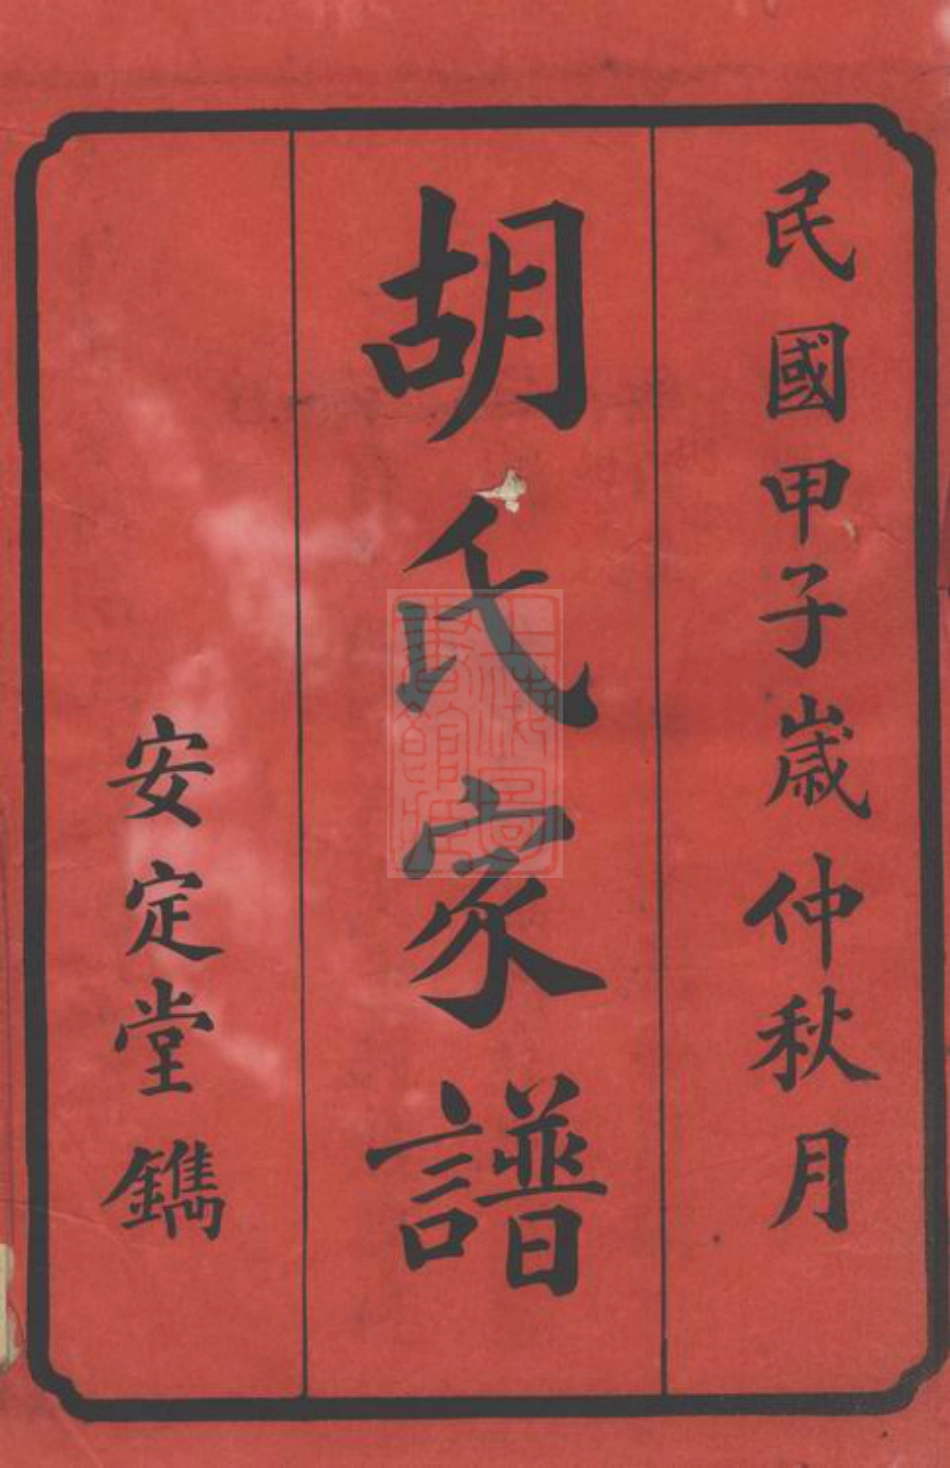 民國甲子歲仲秋月
胡氏家譜
安定堂鐫